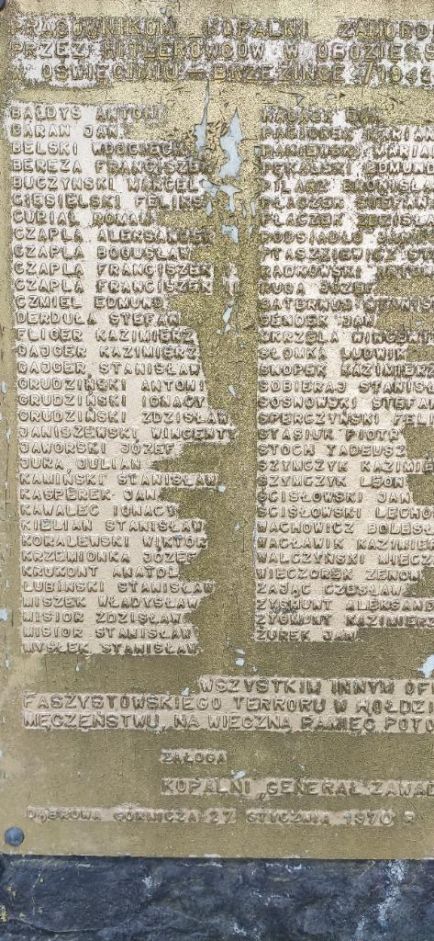 PRACOWNIKOM KOPALNI ZAMORDO
PRZEZ HITLEROWCÓW W OBOZIE
W OŚWIĘCIMIU - BRZEZINCE 1943
BAŁDYS ANTONI
BARAN JAN
BELSKI WOJCIECH
BEREZA FRANCISZEK
BUCZYŃSKI MARCEL
CIESIELSKI FELIKS
CUBIAŁ ROMAN
CZAPLA ALEKSANDER
CZAPLA BOGUSŁAW
CZAPLA FRANCISZEK
CZAPLA FRANCISZEK
CZMIEL EDMUND
DERDUŁA STEFAN
FLIGER KAZIMIERZ
GAJGER KAZIMIERZ
GAJGER STANISŁAW
GRUDZIŃSKI ANTONI
GRUDZIŃSKI IGNACY
GRUDZIŃSKI ZDZISŁAW
JANISZEWSKI WINCENTY
JAWORSKI JÓZEF
JURA JULIAN
KAMIŃSKI STANISŁAW
KASPEREK JAN
KAWALEC IGNACY
KIELIAN STANISŁAW
KORALEWSKI WIKTOR
KRZEMIONKA JÓZEF
KRUKONT ANATOL
ŁUBIŃSKI STANISŁAW
MISZEK WŁADYSŁAW
MISIOR ZDZISŁAW
MISIOR STANISŁAW
MYSŁEK STANISŁAW
JAN
MARIAN
MARIAN
PĘKALSKI EDMUND
PILARZ BRONISŁA
PŁACZEK STEFAN
PŁACZEK ZDZISŁA
PODSIADŁO
PTASZKIEWICZ ST
RADKOWSKI ANTON
RUGA JÓZEF
SATERNUS STANIS
SENDER JAN
SKRZELA WINCENT
SŁOMKA LUDWIK
SNOPEK KAZIMIERZ
SOBIERAJ STANISŁ
SOSNOWSKI STEFA
SPERCZYŃSKI FELI
STASIUK PIOTR
STOCH TADEUSZ
SZYMCZYK KAZIMIE
SZYMCZYK LEON
ŚCISŁOWSKI JAN
ŚCISŁOWSKI LECHO
WACHOWICZ BOLESŁ
WACŁAWIK KAZIMIER
WALCZYŃSKI MIECZ
WIECZOREK ZENON
ZAJĄC CZESŁAW
ZYGMUNT ALEKSAND
ZYGMUNT KAZIMIERZ
ŻUREK JAN
WSZYSTKIM INNYM OFI
FASZYSTOWSKIEGO TERRORU W HOŁDZI
MĘCZEŃSTWU, NA WIECZNĄ PAMIĘĆ POTO
ZAŁOGA
KOPALNI „GENERAŁ ZAWAD
DĄBROWA GÓRNICZA 27 STYCZNIA 1970 R